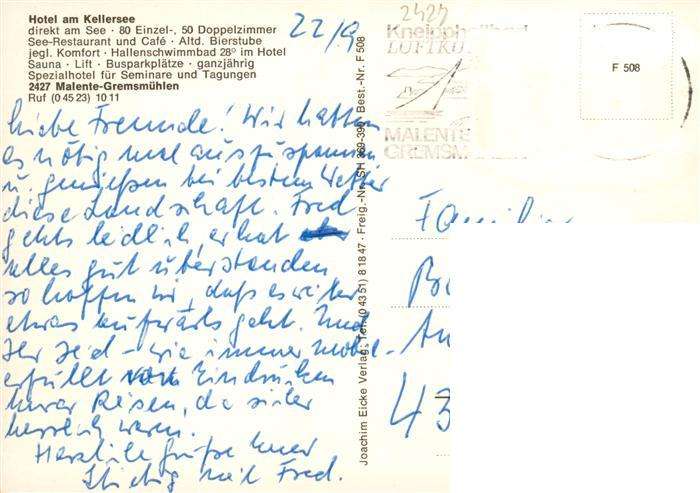 Hotel am Kellersee
direkt am See · 80 Einzel-, 50 Doppelzimmer
See-Restaurant und Café · Altd. Bierstube
jegl. Komfort · Hallenschwimmbad 28° im Hotel
Sauna · Lift · Busparkplätze · ganzjährig
Spezialhotel für Seminare und Tagungen
2427 Malente-Gremsmühlen
Ruf (0 45 23) 10 11
22/9
Liebe Freunde! Wir hatten
es nötig mal auszuspannen
u. genießen bei bestem Wetter
diese Landschaft. Fred
gehts leidlich, er hat
alles gut überstanden
so hoffen wir, daß es weiter
etwas aufwärts geht. Und
Ihr seid - wie immer -
erfüllt von Eindrücken
Eurer Reisen, die sicher
herrlich waren.
Herzliche Grüße Eurer
mit Fred.
Joachim Eicke Verlag; Tel. (0 43 51) 8 18 47 · Freig.-Nr. SH 369-390 Best.-Nr. F 508
2427
Kneippheilbad
LUFTKU
MALENTE
GREMSM
F 508
Familie
43